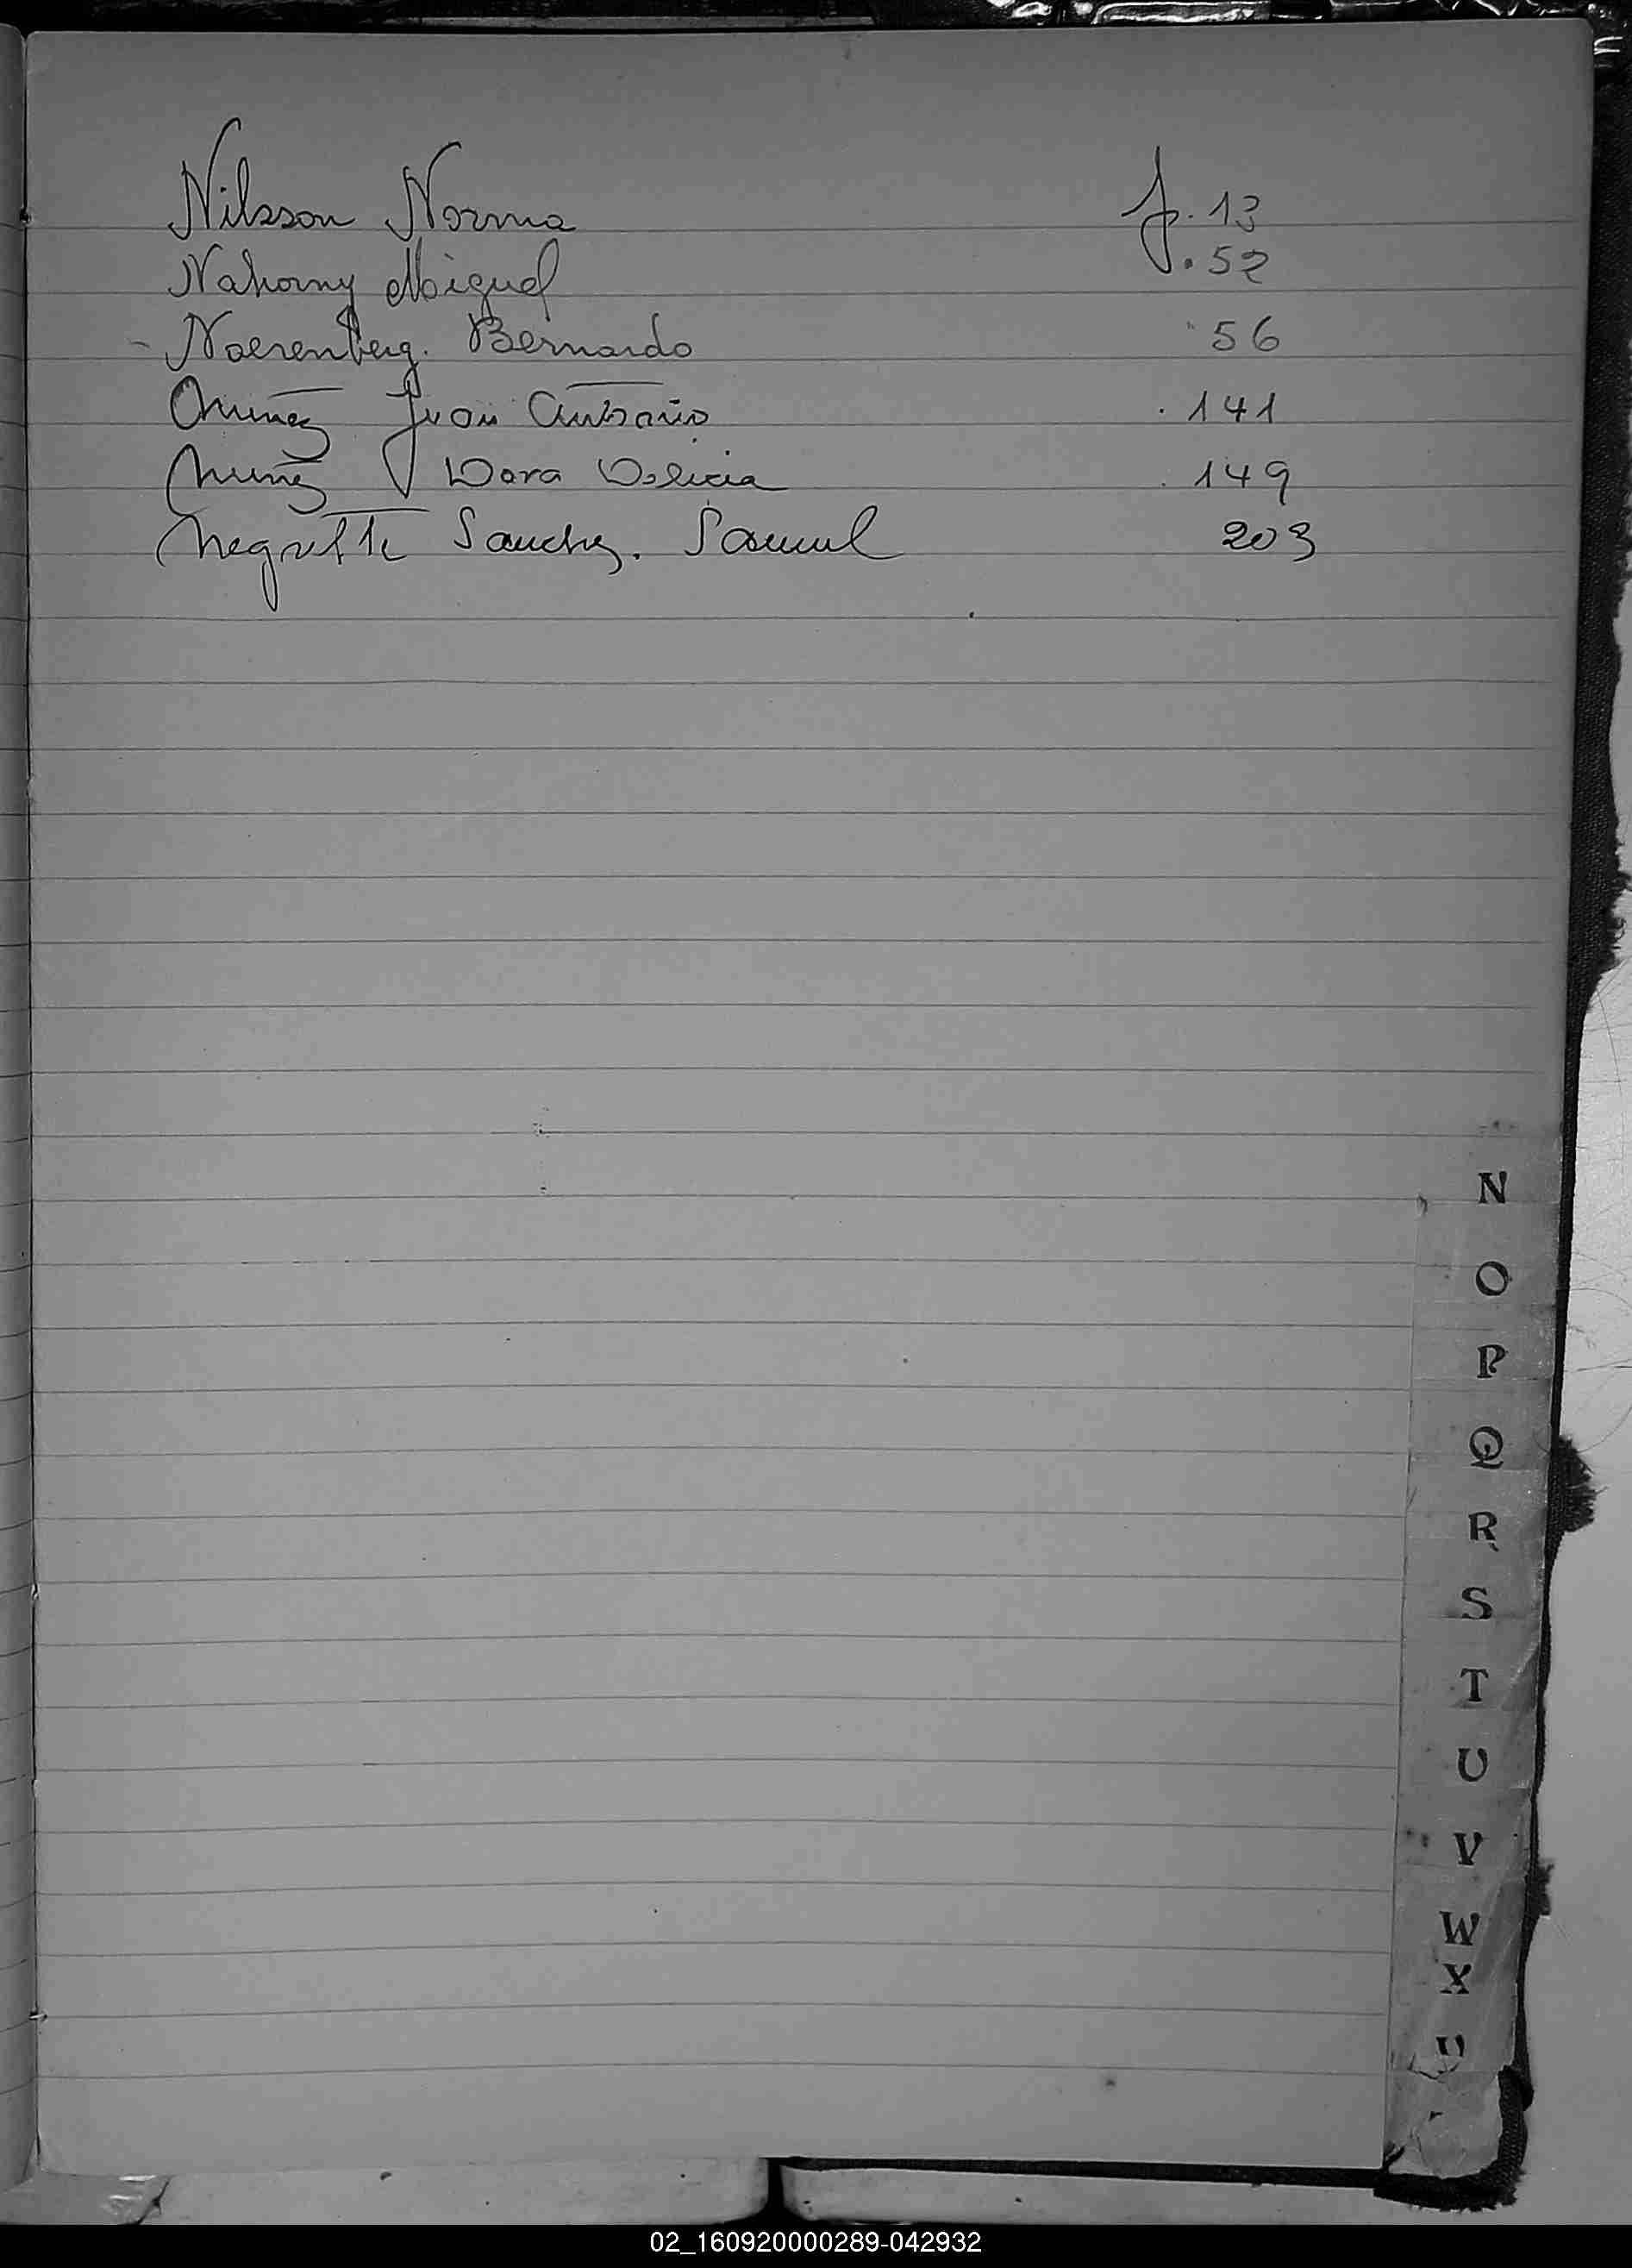 Nilsson Norma f. 13
Nahorny Miguel . 52
- Noerenberg. Bernardo 56
Nuñez Juan Antonio . 141
Nuñez Dora Delicia . 149
Negrette Sanchez. Samuel 203
N
O
P
Q
R
S
T
U
V
W
X
02_160920000289-042932